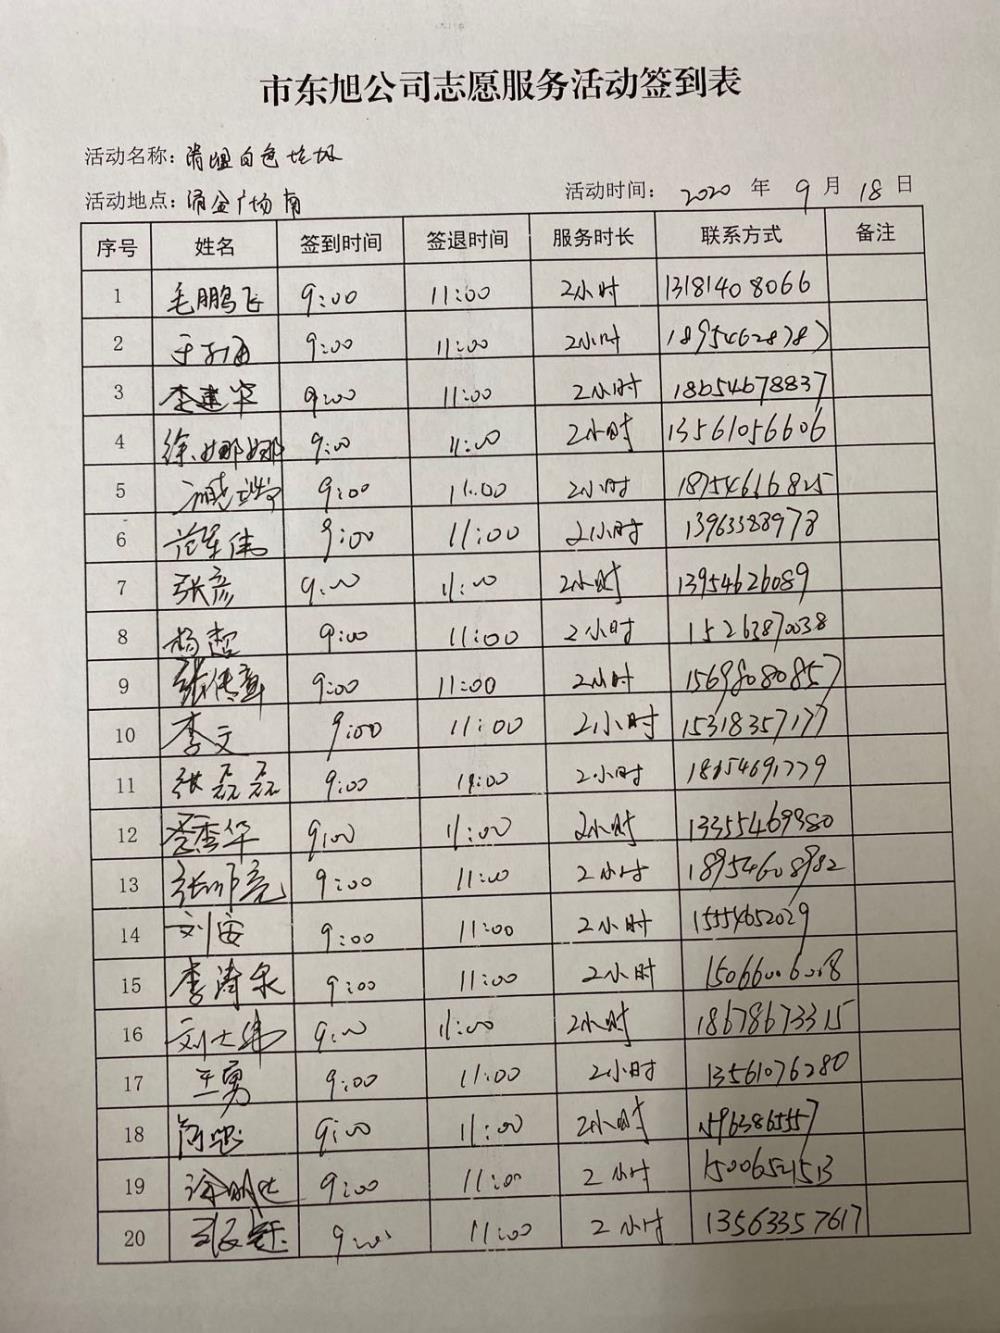 市东旭公司志愿服务活动签到表
活动名称：清理白色垃圾
活动地点：涌金广场南 活动时间： 2020 年 9 月 18 日
序号 姓名 签到时间 签退时间 服务时长 联系方式 备注
1 毛鹏飞 9:00 11:00 2小时 13181408066
2 9:00 11:00 2小时 18954628787
3 李建军 9:00 11:00 2小时 18654678837
4 徐娜娜 9:00 11:00 2小时 13561056606
5 9:00 11:00 2小时 18754616825
6 范军伟 9:00 11:00 2小时 13963388978
7 张彦 9:00 11:00 2小时 13954626089
8 杨超 9:00 11:00 2小时 15263870038
9 张传章 9:00 11:00 2小时 15698080857
10 李文 9:00 11:00 2小时 15318357177
11 张磊磊 9:00 11:00 2小时 18654691779
12 李秀华 9:00 11:00 2小时 13355469980
13 张帅亮 9:00 11:00 2小时 18954608982
14 刘安 9:00 11:00 2小时 15554652029
15 李涛泉 9:00 11:00 2小时 15066006028
16 刘士伟 9:00 11:00 2小时 18678673315
17 王勇 9:00 11:00 2小时 13561076280
18 9:00 11:00 2小时 15963865557
19 徐明达 9:00 11:00 2小时 15006521513
20 9:00 11:00 2小时 13563357617